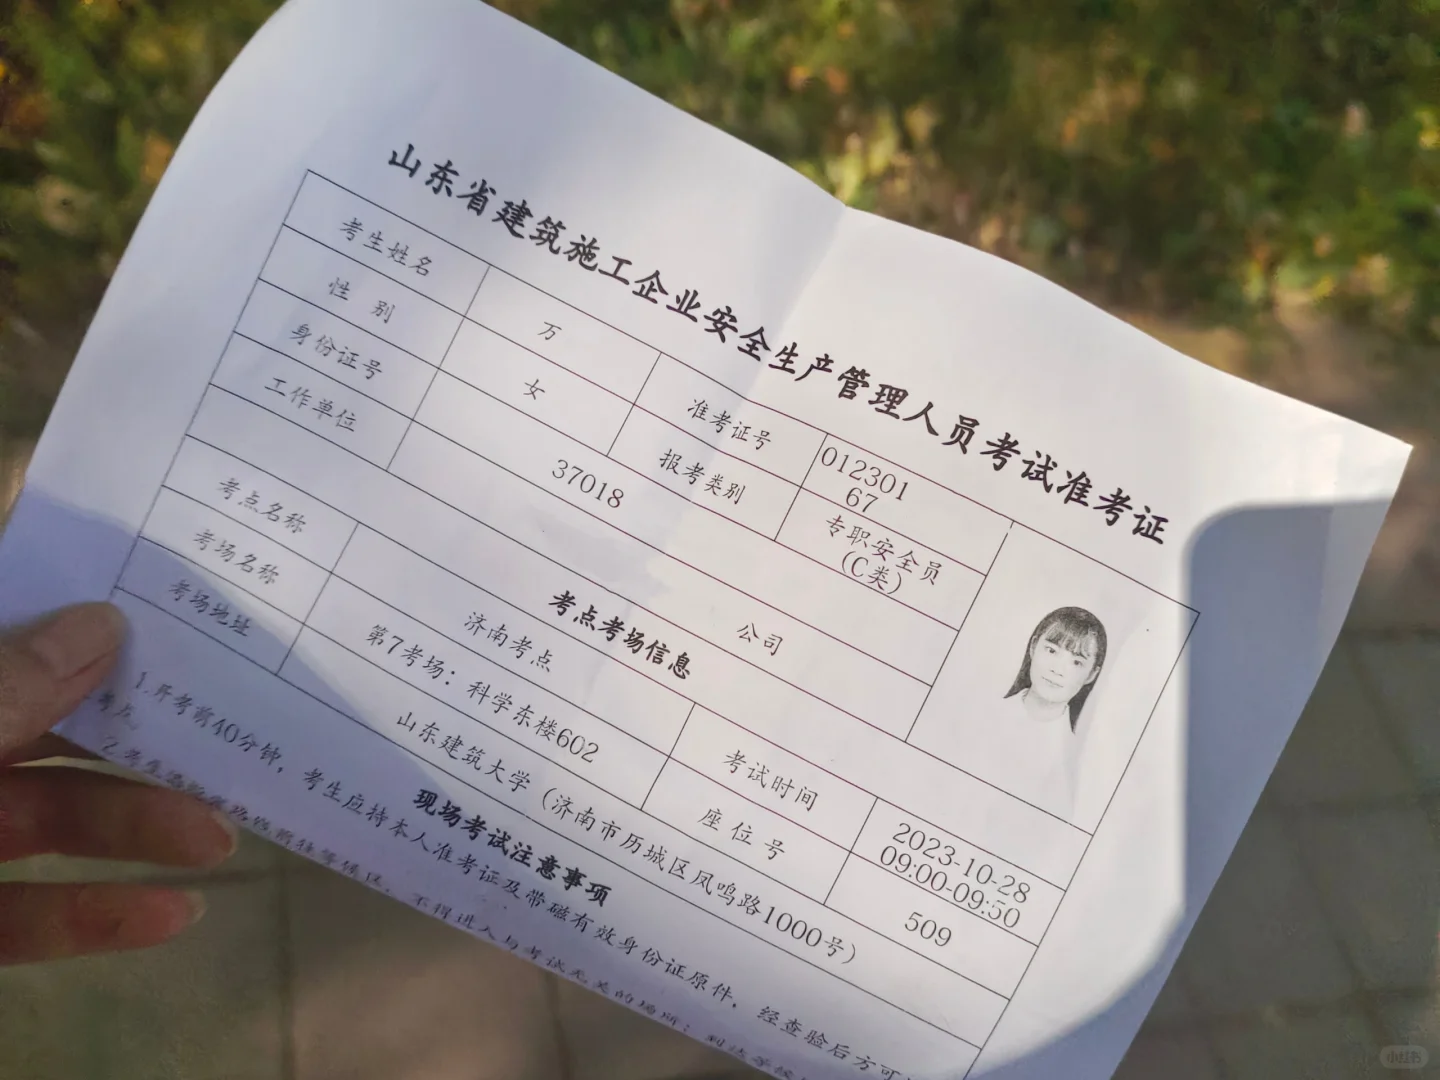 山东省建筑施工企业安全生产管理人员考试准考证
考生姓名 万 准考证号 012301
67
性 别 女 报考类别 专职安全员
(C类)
身份证号 37018
工作单位 公司
考点考场信息
考点名称 济南考点 考试时间 2023-10-28
09:00-09:50
考场名称 第7考场：科学东楼602 座 位 号 509
考场地址 山东建筑大学（济南市历城区凤鸣路1000号）
现场考试注意事项
1.开考前40分钟，考生应持本人准考证及带磁有效身份证原件，经查验后方可
考点
2.考生 不得进入与考试无关的场所；
小红书